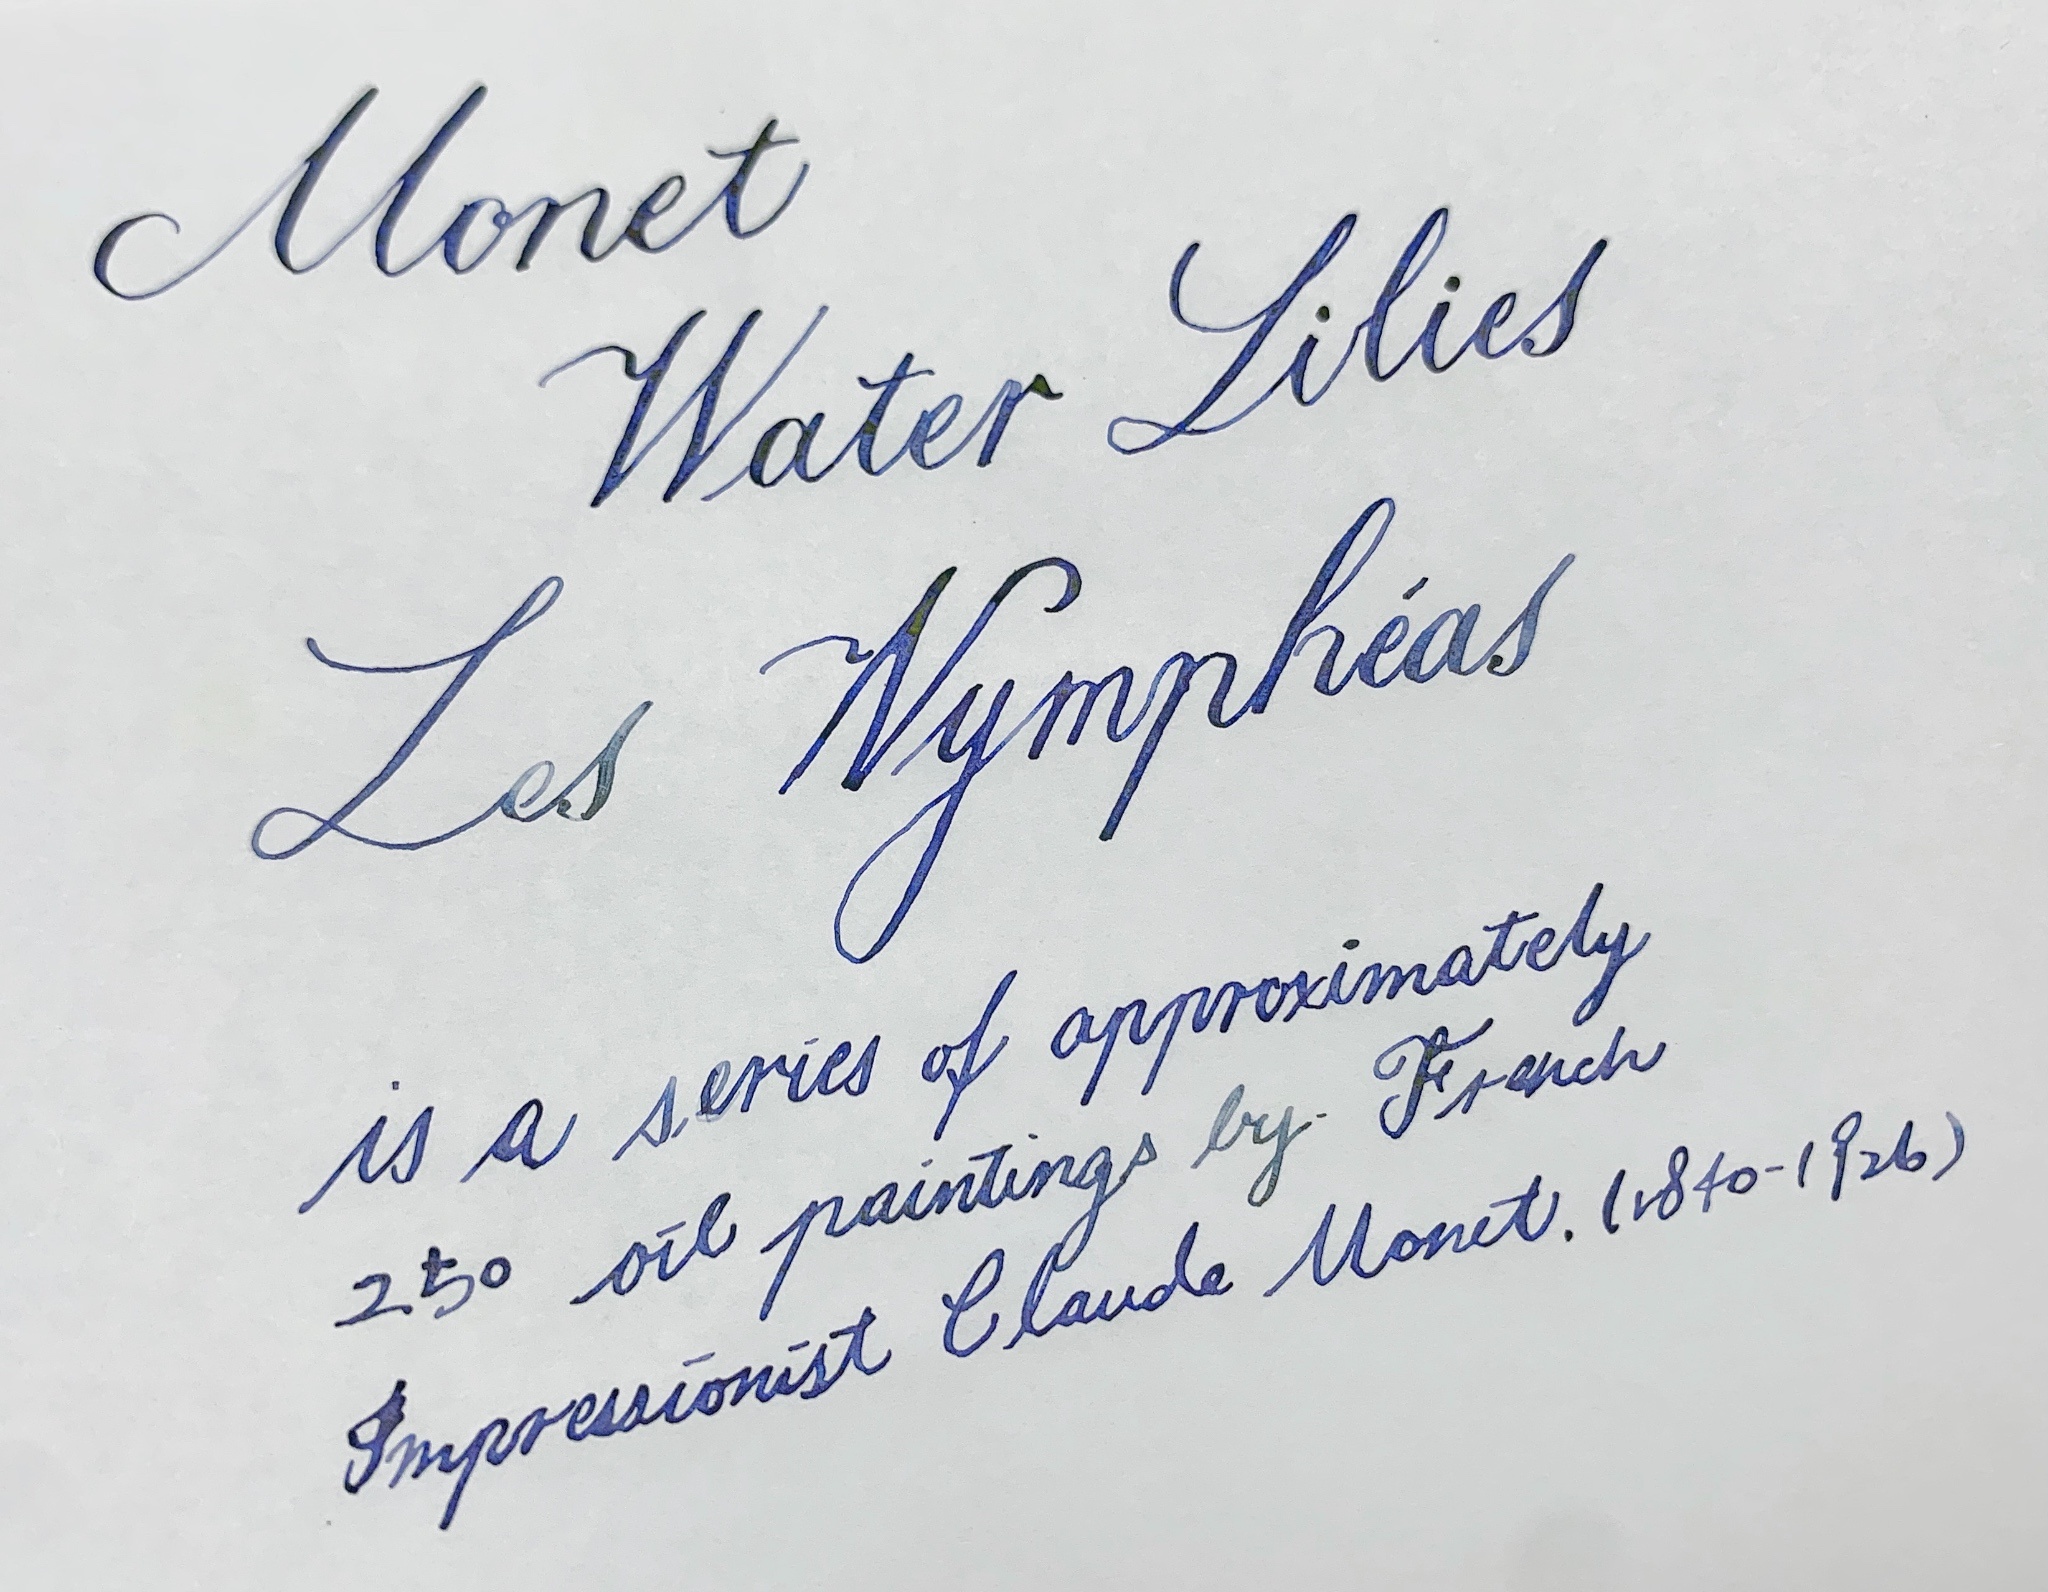 Monet
Water Lilies
Les Nymphéas
is a series of approximately
250 oil paintings by French
Impressionist Claude Monet. (1840-1926)